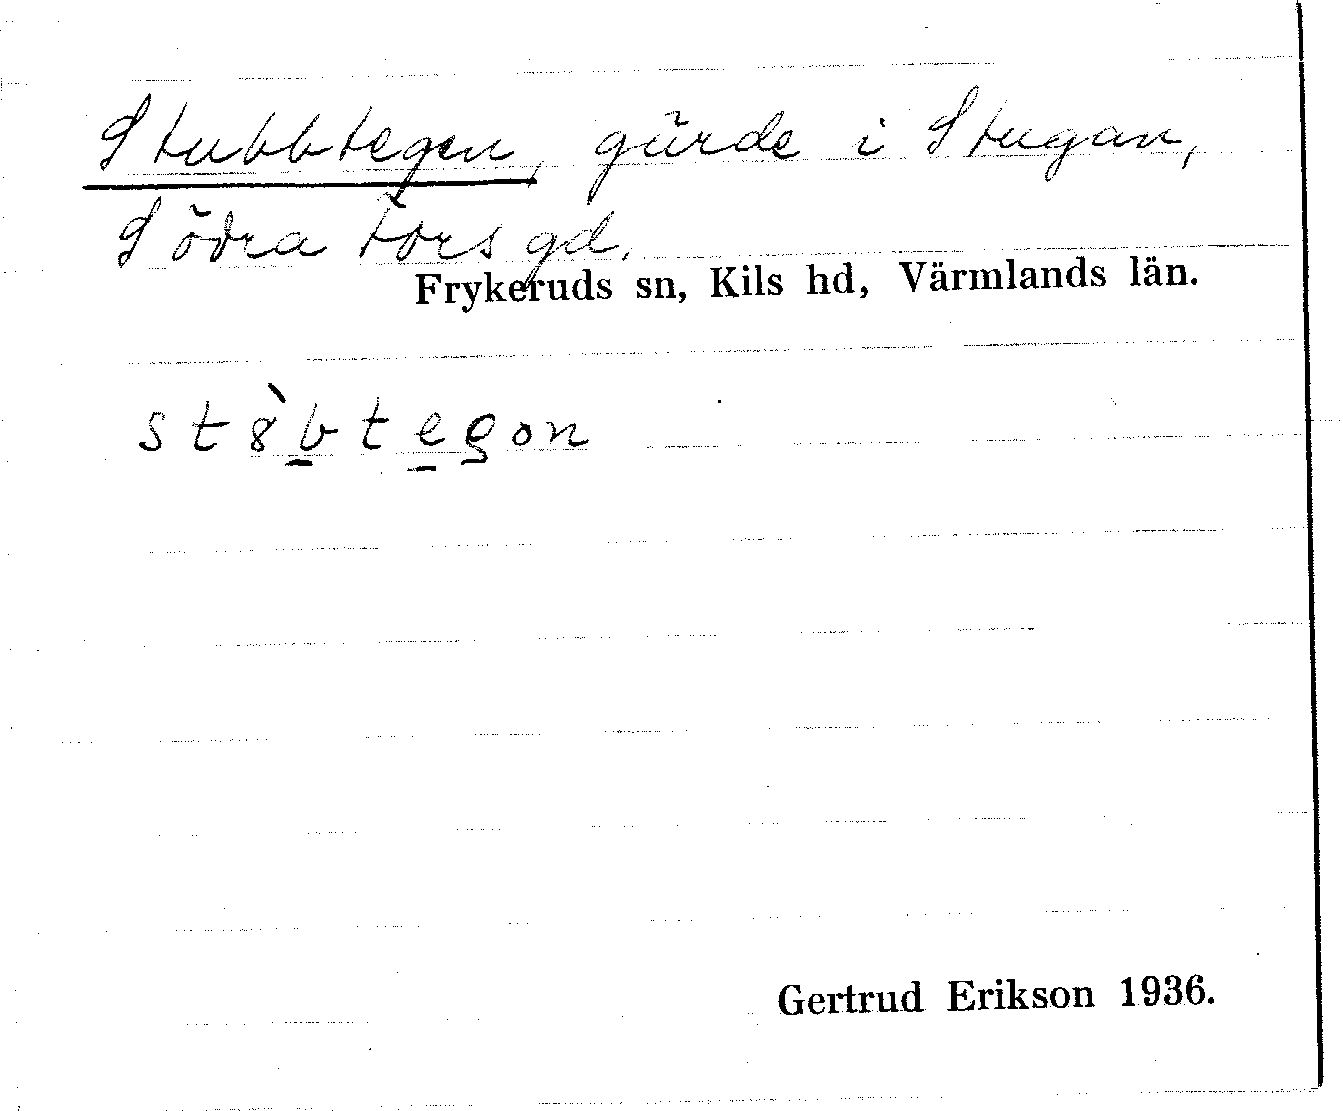 Stubbtegen, gärde i Stugan,
Södra Torsgd.
Frykeruds sn, Kils hd, Värmlands län.
st8̀b̲te̲gon
Gertrud Erikson 1936.